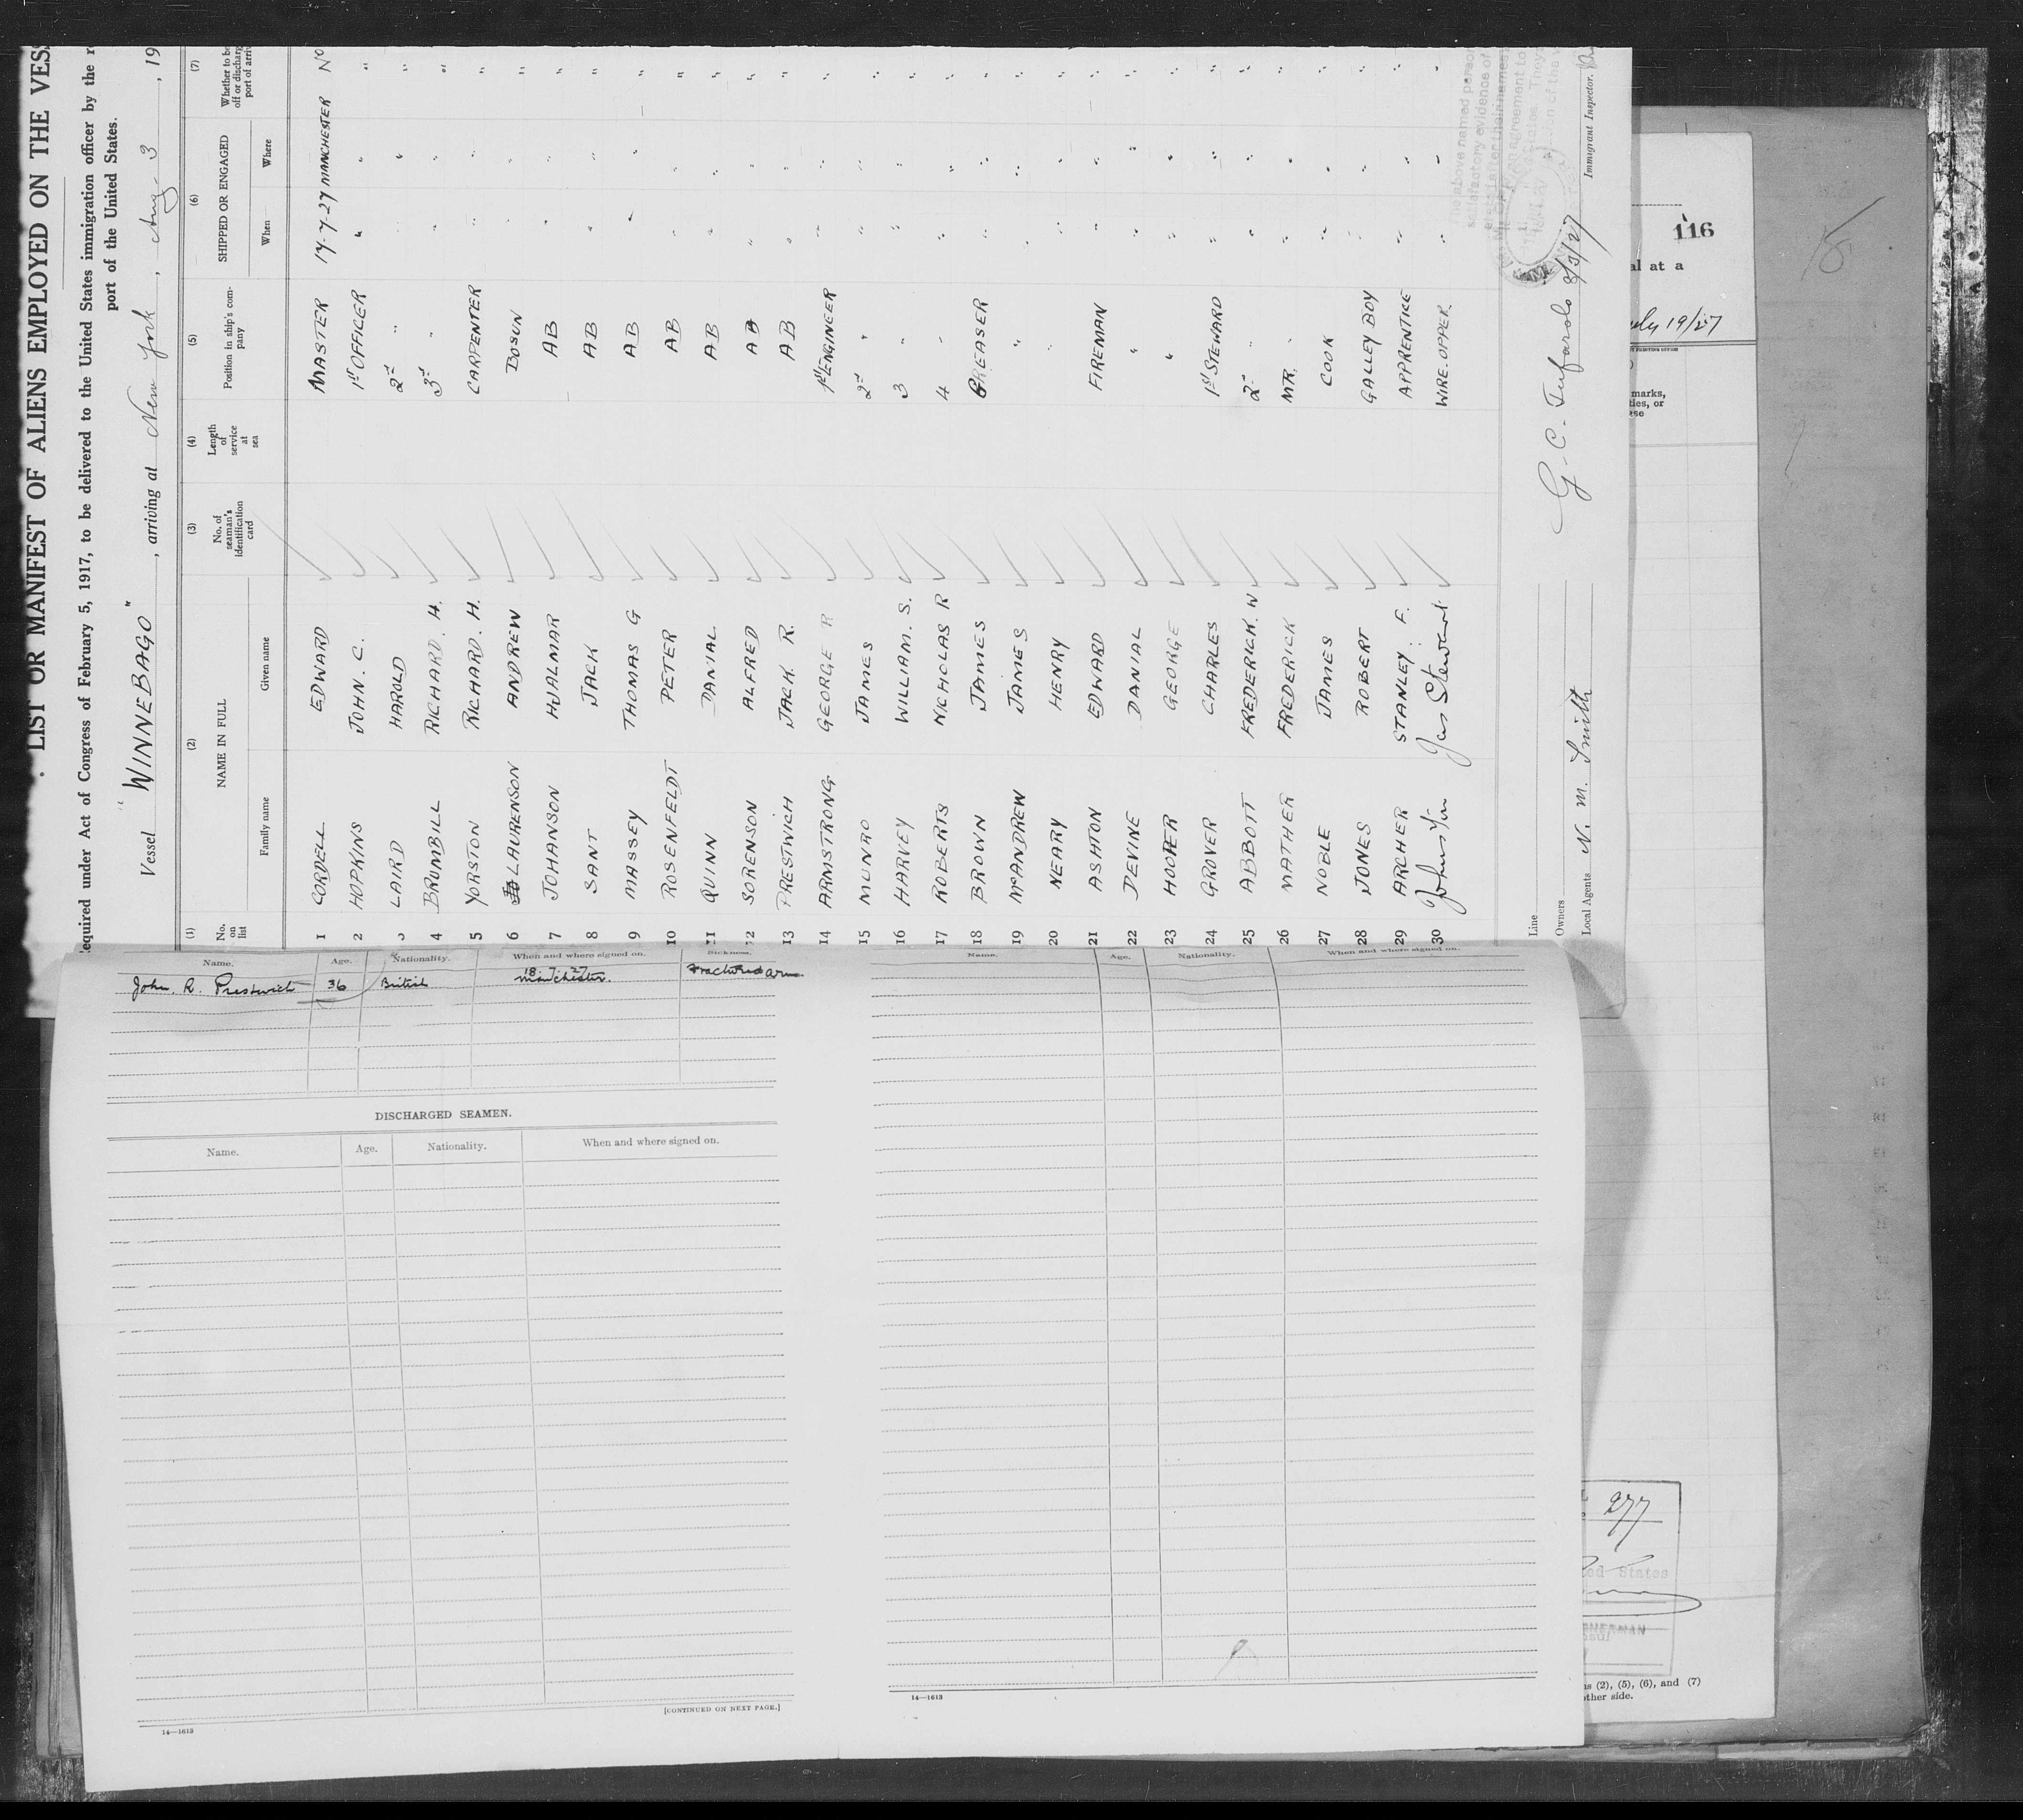 LIST OR MANIFEST OF ALIENS EMPLOYED ON THE VES
equired under Act of Congress of February 5, 1917, to be delivered to the United States immigration officer by the r
port of the United States.
Vessel "WINNEBAGO", arriving at New York, Aug- 3, 19
(1) (2) (3) (4) (5) (6) (7)
No. on list
NAME IN FULL
Family name Given name
No. of seaman's identification card
Length of service at sea
Position in ship's company
SHIPPED OR ENGAGED
When Where
Whether to be
off or discharg
port of arriv
1 CORDELL EDWARD MASTER 17-7-27 MANCHESTER NO
2 HOPKINS JOHN. C. 1st OFFICER " " "
3 LAIRD HAROLD 2nd " " "
4 BRUMBILL RICHARD. H. 3rd " " " "
5 YORSTON RICHARD. H. CARPENTER " " "
6 LAURENSON ANDREW BOSUN " " "
7 JOHANSON HJALMAR AB " " "
8 SANT JACK AB " " "
9 MASSEY THOMAS G AB " " "
10 ROSENFELDT PETER AB " " "
11 QUINN DANIAL AB " " "
12 SORENSON ALFRED AB " " "
13 PRESTWICH JACK R. AB " " "
14 ARMSTRONG GEORGE R 1st ENGINEER " " "
15 MUNRO JAMES 2nd " " " "
16 HARVEY WILLIAM. S. 3 " " " "
17 ROBERTS NICHOLAS R 4 " " " "
18 BROWN JAMES GREASER " " "
19 McANDREW JAMES " " " "
20 NEARY HENRY " " " "
21 ASHTON EDWARD FIREMAN " " "
22 DEVINE DANIAL " " " "
23 HOOPER GEORGE " " " "
24 GROVER CHARLES 1st STEWARD " " "
25 ABBOTT FREDERICK. W 2nd " " " "
26 MATHER FREDERICK MR. " " " "
27 NOBLE JAMES COOK " " "
28 JONES ROBERT GALLEY BOY " " "
29 ARCHER STANLEY. F. APPRENTICE " " "
30 Johnston Jas Stewart WIRE. OPPER. " " "
Line
Owners
Local Agents N. M. Smith
8/3/27
Immigrant Inspector.
The above named perso
satisfactory evidence of
agreement to
116
al at a
July 19/27
marks,
ties, or
ase
277
ed States
ns (2), (5), (6), and (7)
other side.
Name. Age. Nationality. When and where signed on. Sickness.
John. R. Prestwich 36 British 18. 7. 27 Manchester. Fractured arm
DISCHARGED SEAMEN.
Name. Age. Nationality. When and where signed on.
[CONTINUED ON NEXT PAGE.]
14—1613
Name. Age. Nationality. When and where signed on.
14—1613